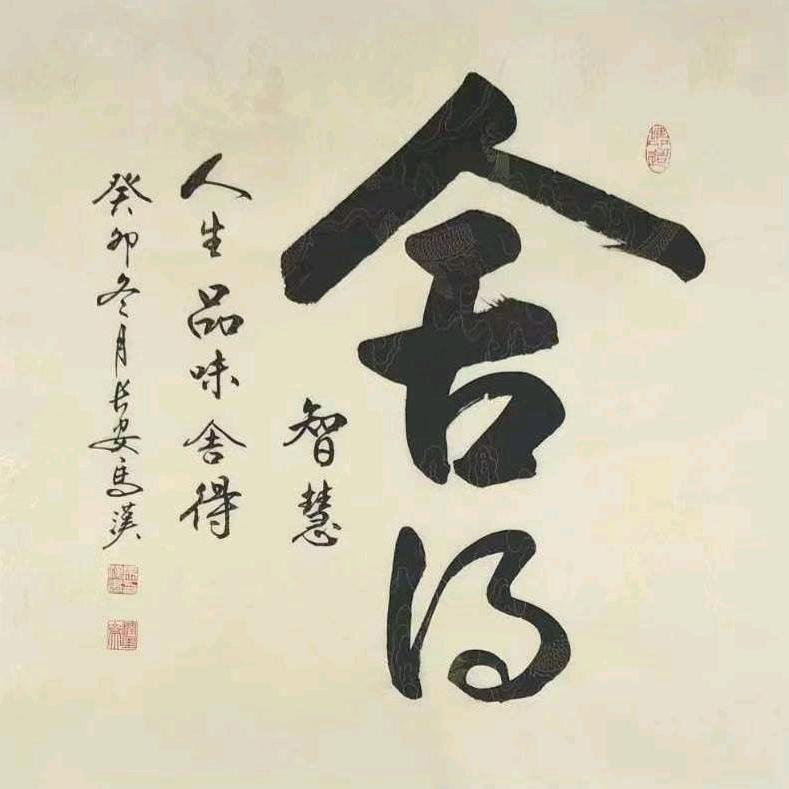 舍得
智慧
人生品味舍得
癸卯冬月长安马汉